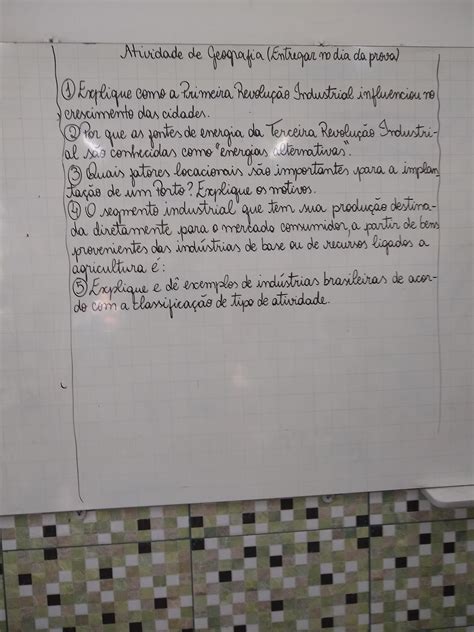 Atividade de Geografia (Entregar no dia da prova)
① Explique como a Primeira Revolução Industrial influenciou no
crescimento das cidades.
② Por que as fontes de energia da Terceira Revolução Industri-
al são conhecidas como "energias alternativas".
③ Quais fatores locacionais são importantes para a implan-
tação de um Porto? Explique os motivos.
④ O segmento industrial que tem sua produção destina-
da diretamente para o mercado consumidor, a partir de bens
provenientes das indústrias de base ou de recursos ligados a
agricultura é:
⑤ Explique e dê exemplos de indústrias brasileiras de acor-
do com a classificação de tipo de atividade.